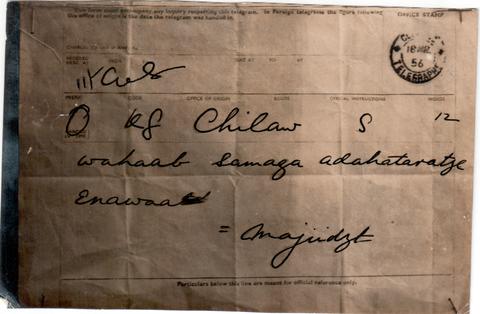 This form must accompany any inquiry respecting this telegram. In Foreign telegrams the figure following
the office of origin is the date the telegram was handed in.
OFFICE STAMP
RECEIVED
HERE AT
FROM
SENT AT
TO
AT
18
56
TELEGRAPHS
PREFIX CODE OFFICE OF ORIGIN ROUTE OFFICIAL INSTRUCTIONS WORDS
O Chilaw S 12
wahaab samaga adahataratze
Enawaa
= Majiidzt
Particulars below this line are meant for official reference only.